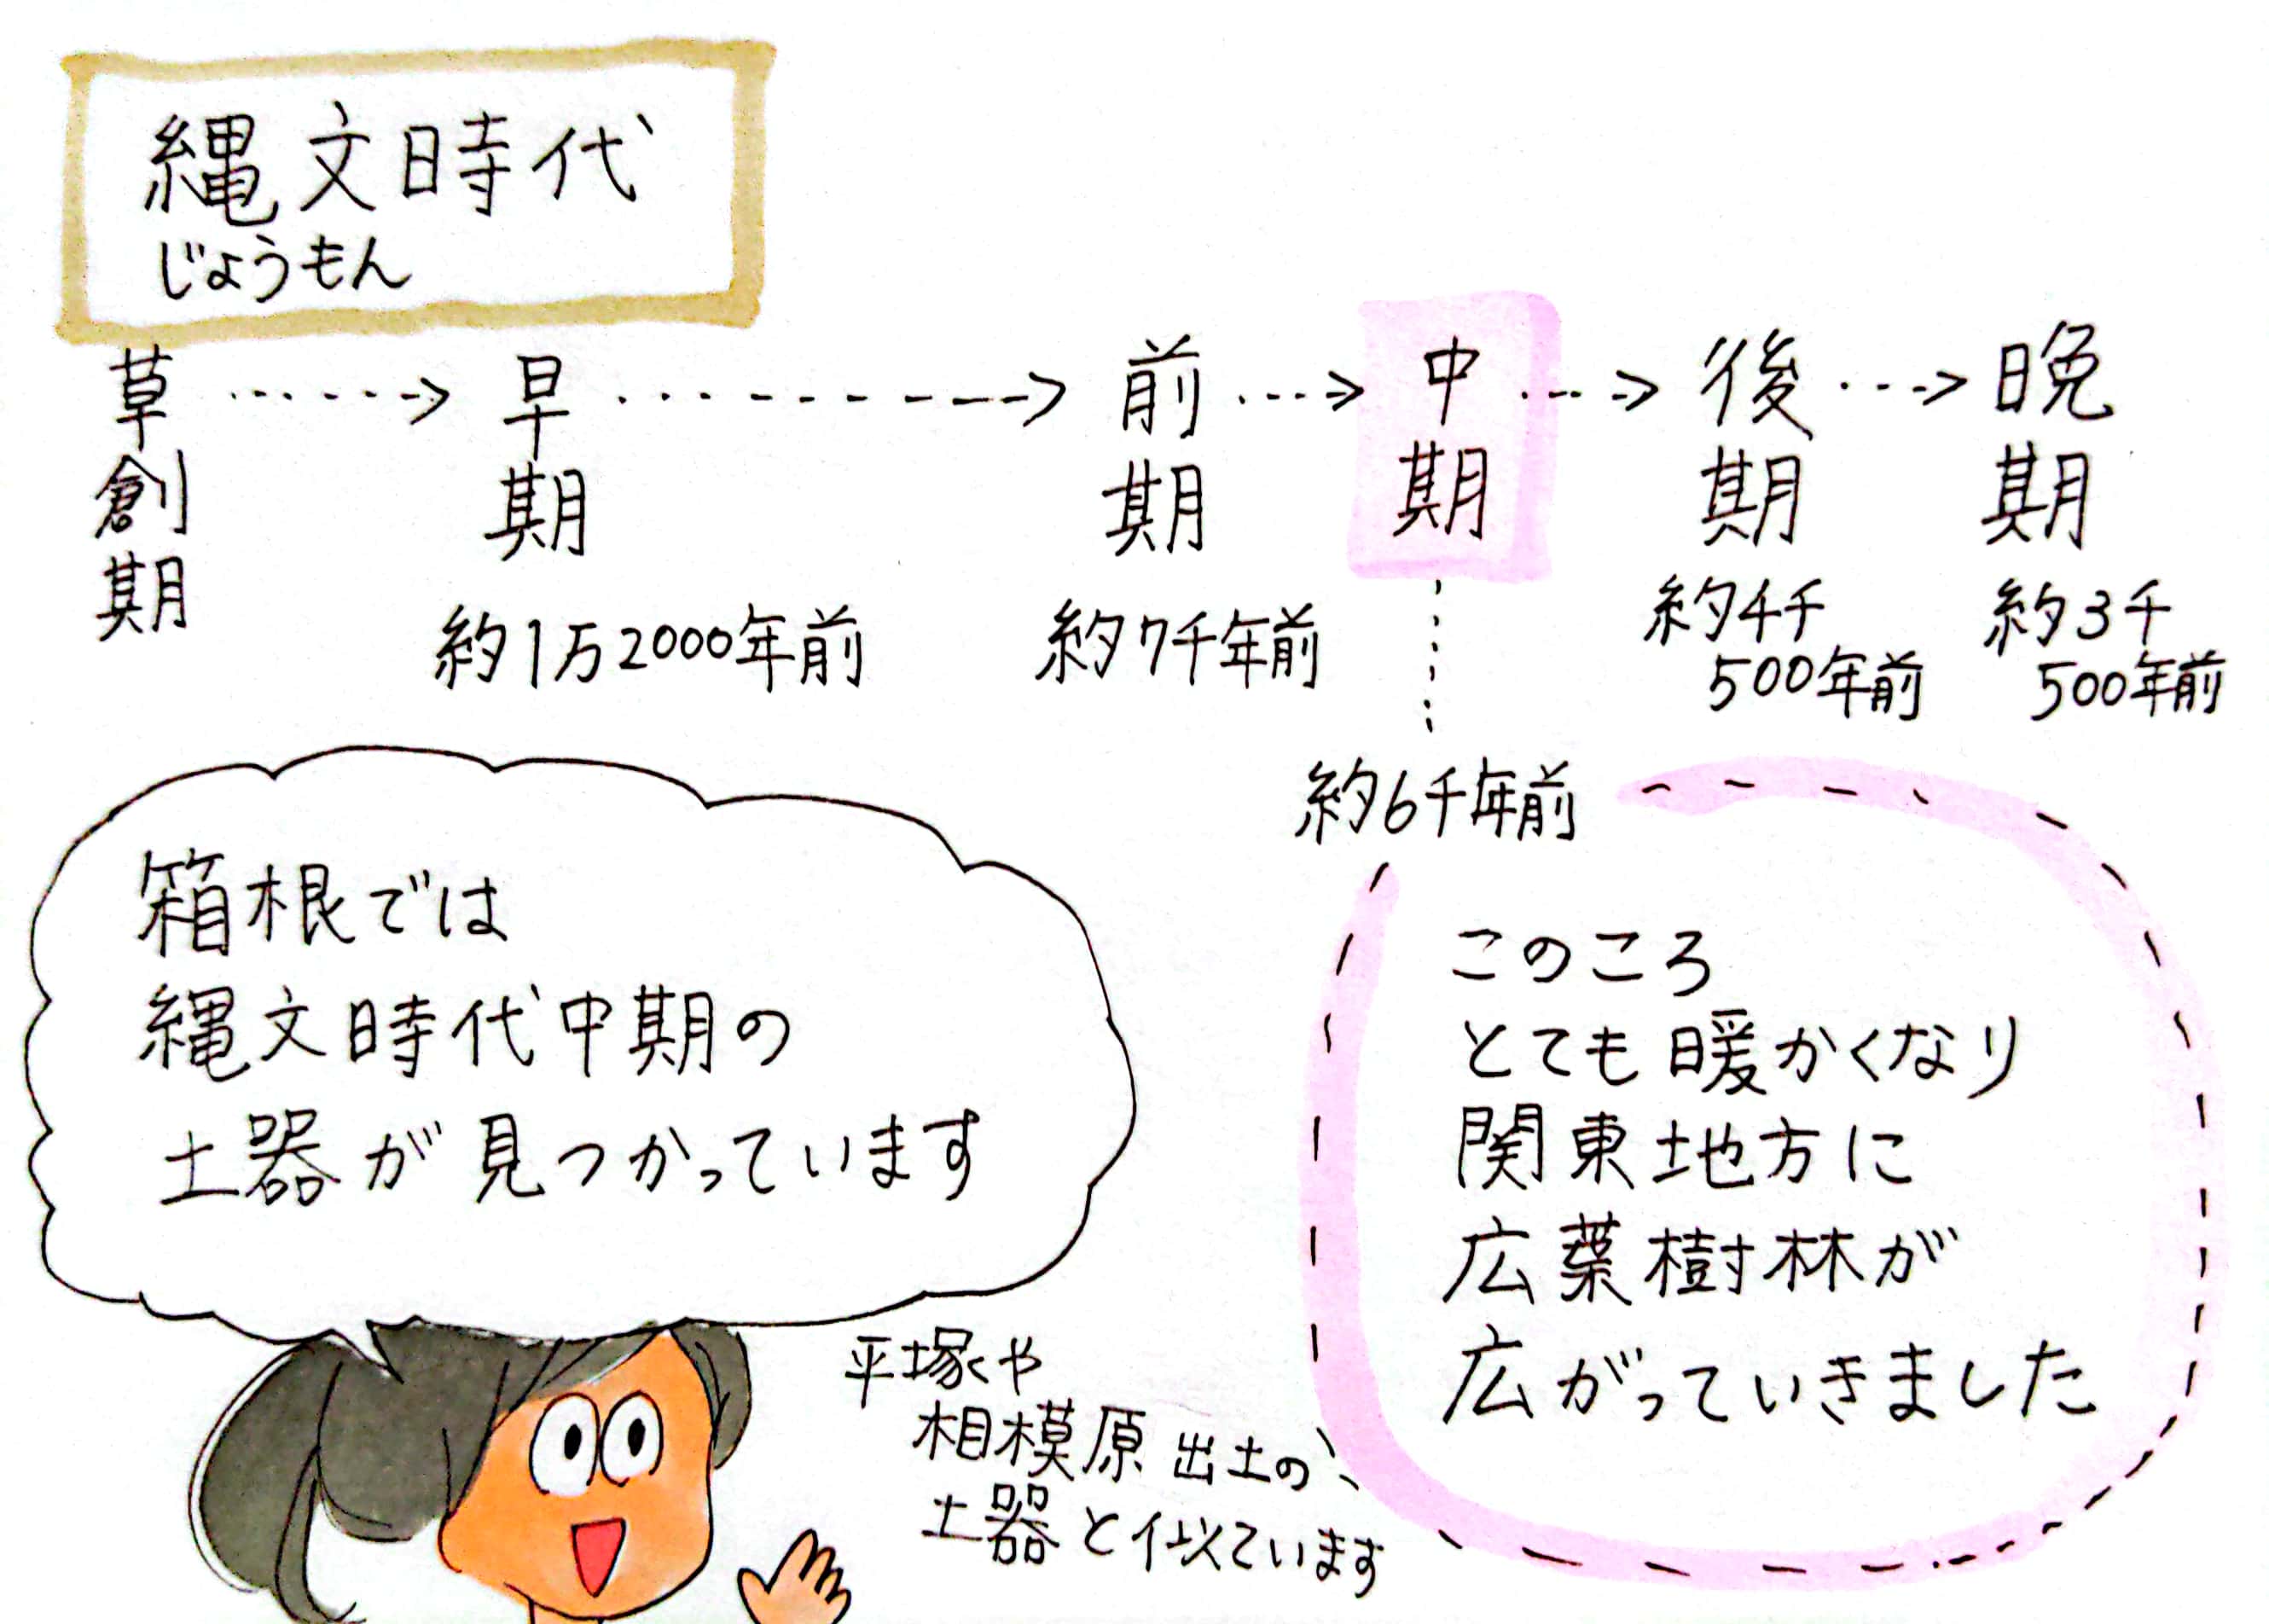 縄文時代
じょうもん
草創期
早期
前期
中期
後期
晩期
約1万2000年前
約7千年前
約4千
500年前
約3千
500年前
約6千年前
箱根では
縄文時代中期の
土器が見つかっています
このころ
とても暖かくなり
関東地方に
広葉樹林が
広がっていきました
平塚や
相模原出土の
土器と似ています